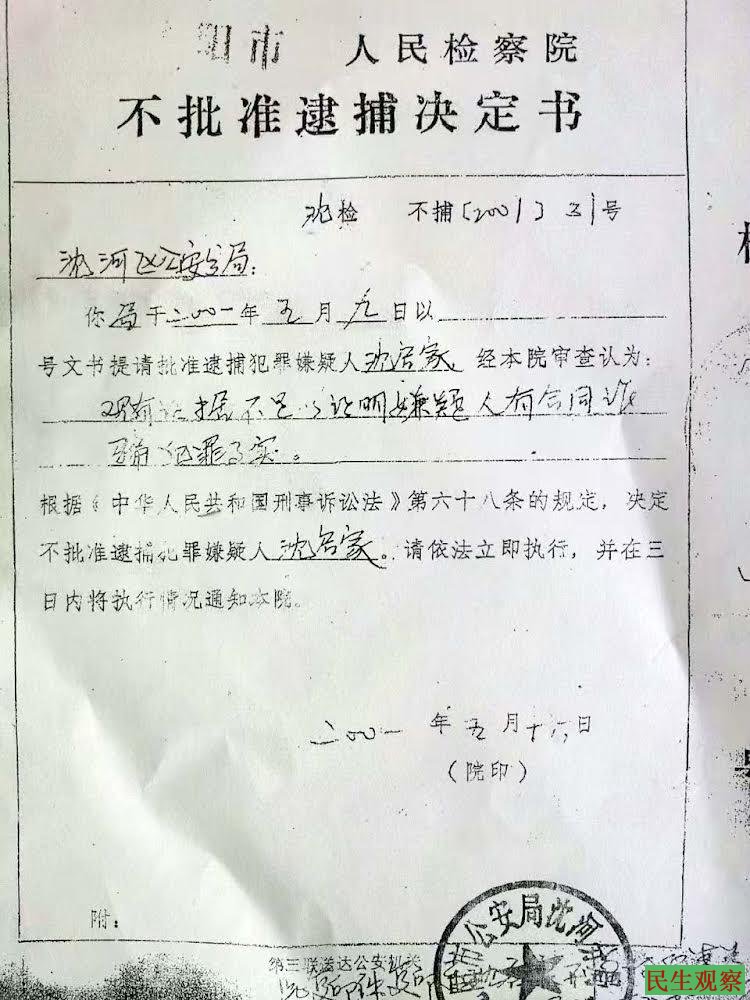 阳市 人民检察院
不批准逮捕决定书
沈检 不捕〔2001〕31号
沈河区公安分局：
你局于二〇〇一年五月九日以
号文书提请批准逮捕犯罪嫌疑人沈启家，经本院审查认为：
现有证据不足以证明嫌疑人有合同诈
骗犯罪事实。
根据《中华人民共和国刑事诉讼法》第六十八条的规定，决定
不批准逮捕犯罪嫌疑人沈启家。请依法立即执行，并在三
日内将执行情况通知本院。
二〇〇一年五月十六日
（院印）
附：
公安局沈河
第三联送达公安机关
民生观察